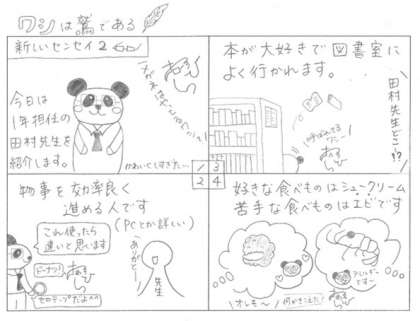 ワシは鷲である
新しいセンセイ2
今日は
1年担任の
田村先生を
紹介します。
かわいくしすぎた…
物事を効率良く
進める人です
(PCとか詳しい)
これ使ったら
速いと思います
ドーナツ!
セロテープだよ
ありがとー
先生
1 3
2 4
本が大好きで図書室に
よく行かれます。
田村先生どこ!?
呼ばれてるワシー!
好きな食べものはシュークリーム
苦手な食べものはエビです
アレルギーでーす
オレもー
何かきこえた!